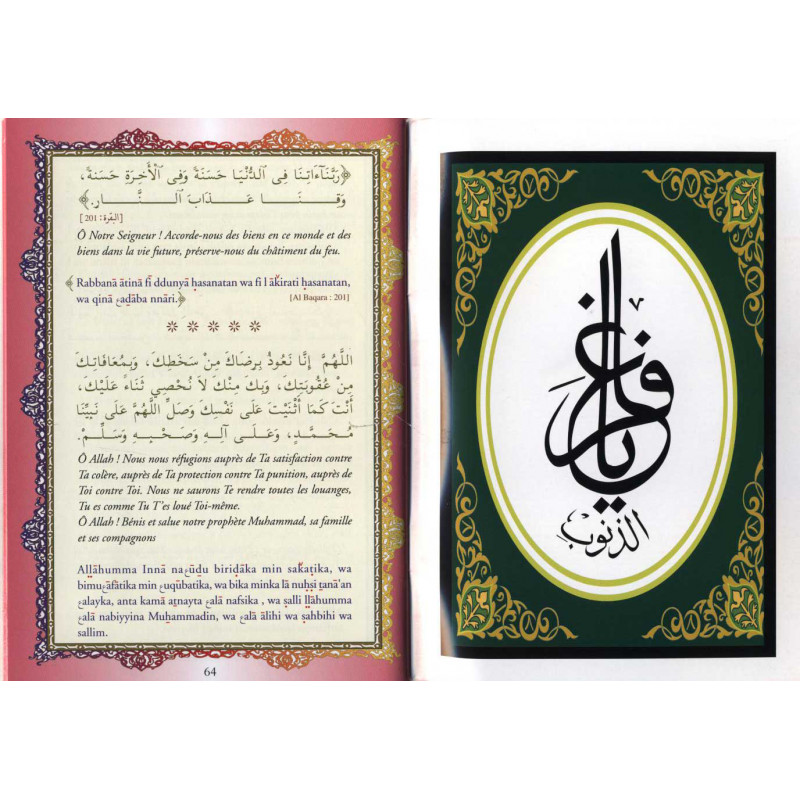 ﴿رَبَّنَآ ءَاتِنَا فِى ٱلدُّنْيَا حَسَنَةً وَفِى ٱلْأَخِرَةِ حَسَنَةً،
وَقِنَا عَذَابَ ٱلنَّارِ.﴾
[البقرة: 201]
Ô Notre Seigneur ! Accorde-nous des biens en ce monde et des
biens dans la vie future, préserve-nous du châtiment du feu.
﴾Rabbanā ātinā fī ddunyā ḥasanatan wa fi l āḵirati ḥasanatan,
wa qinā عaḏāba nnāri.﴿
[Al Baqara : 201]
اللَّهُمَّ إِنَّا نَعُوذُ بِرِضَاكَ مِنْ سَخَطِكَ، وَبِمُعَافَاتِكَ
مِنْ عُقُوبَتِكَ، وَبِكَ مِنْكَ لَا نُحْصِي ثَنَاءً عَلَيْكَ،
أَنْتَ كَمَا أَثْنَيْتَ عَلَى نَفْسِكَ وَصَلِّ اللَّهُمَّ عَلَى نَبِيِّنَا
مُحَمَّدٍ، وَعَلَى آلِهِ وَصَحْبِهِ وَسَلِّمْ.
Ô Allah ! Nous nous réfugions auprès de Ta satisfaction contre
Ta colère, auprès de Ta protection contre Ta punition, auprès de
Toi contre Toi. Nous ne saurons Te rendre toutes les louanges,
Tu es comme Tu T'es loué Toi-même.
Ô Allah ! Bénis et salue notre prophète Muhammad, sa famille
et ses compagnons
Allāhumma Innā naعūḏu biriḍāka min saḵaṭika, wa
bimuعāfātika min عuqūbatika, wa bika minka lā nuḥṣi ṯanā'an
عalayka, anta kamā aṯnayta عalā nafsika , wa ṣalli llāhumma
عalā nabiyyina Muḥammadin, wa عalā ālihi wa ṣahbihi wa
sallim.
64
يا غافر
الذنوب